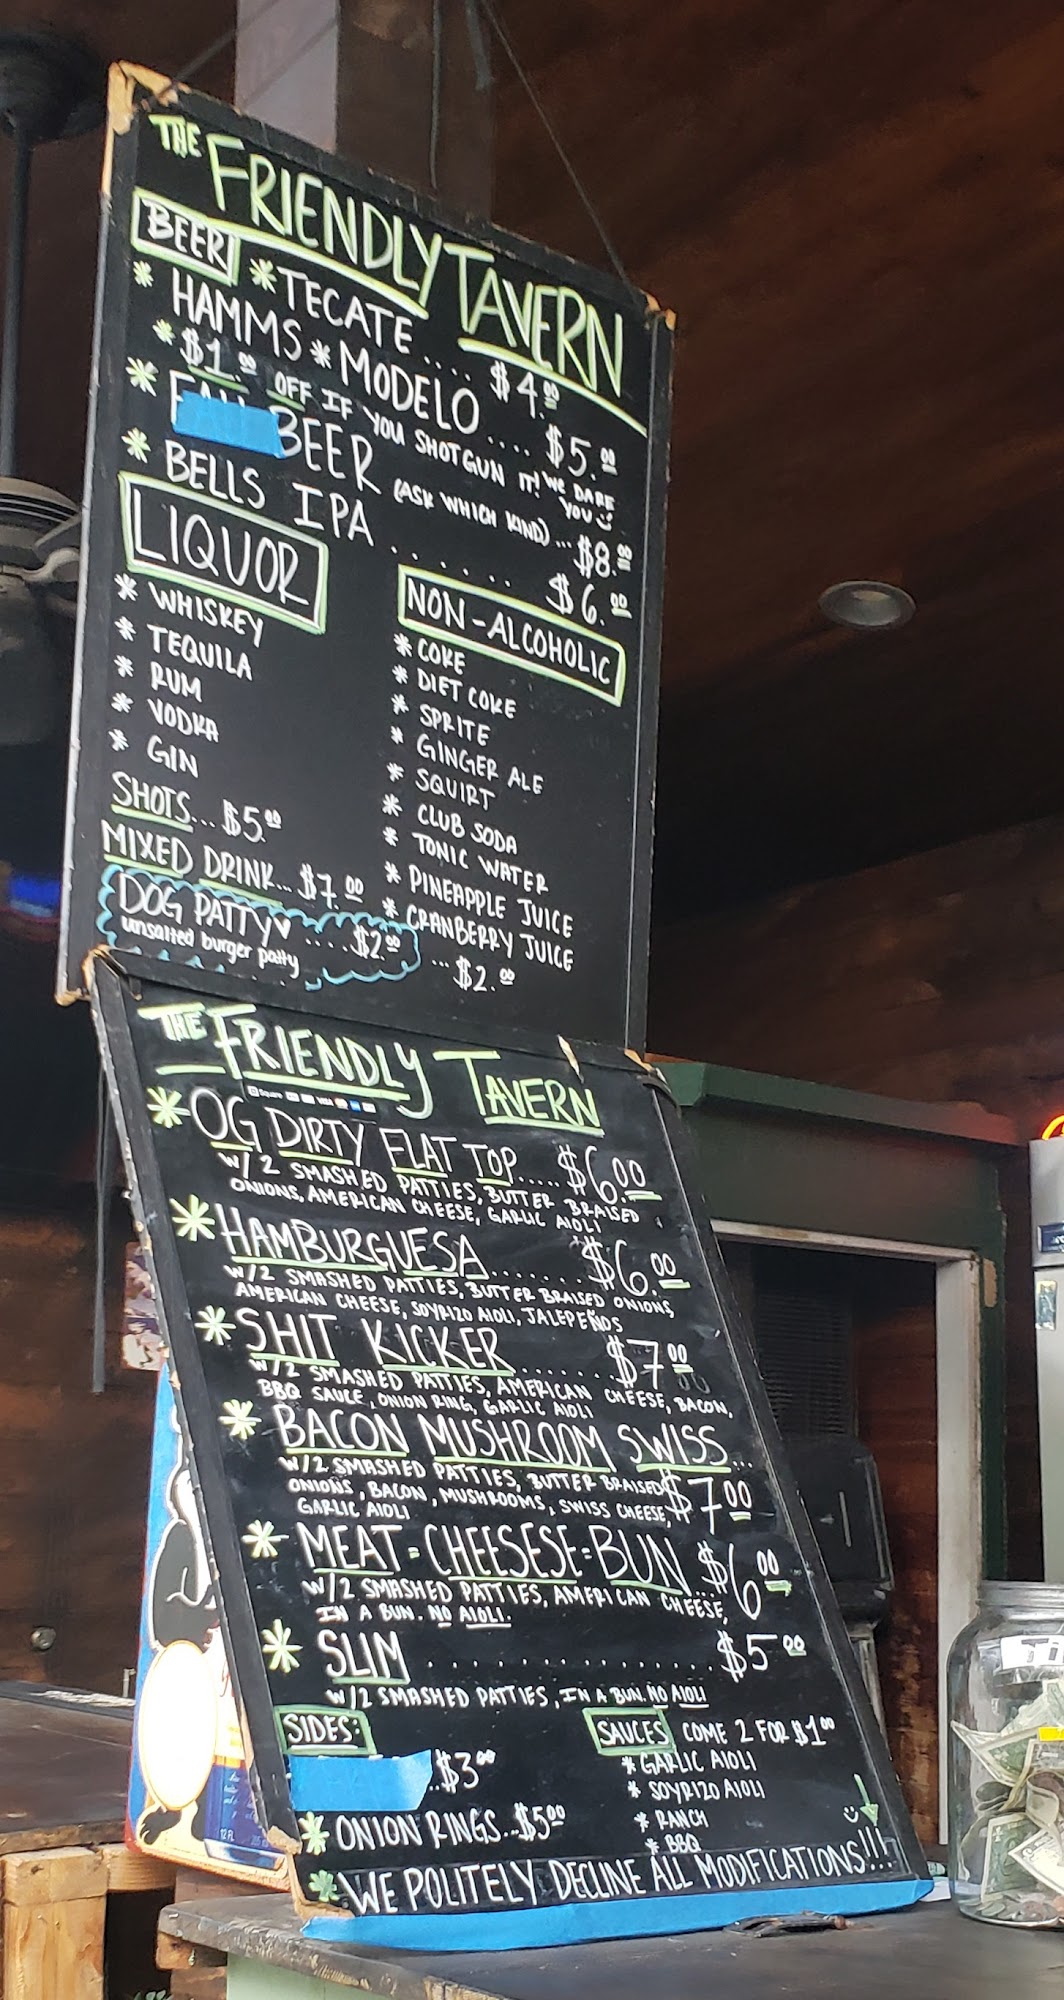 THE FRIENDLY TAVERN
BEER * TECATE .... $4.00
* HAMMS * MODELO .... $5.00
* $1.00 OFF IF YOU SHOTGUN IT! WE DARE
YOU
* BEER (ASK WHICH KIND)... $8.00
* BELLS IPA ...... $6.00
LIQUOR
* WHISKEY
* TEQUILA
* RUM
* VODKA
* GIN
SHOTS... $5.00
MIXED DRINK... $7.00
DOG PATTY♥ .... $2.00
unsalted burger patty
NON-ALCOHOLIC
* COKE
* DIET COKE
* SPRITE
* GINGER ALE
* SQUIRT
* CLUB SODA
* TONIC WATER
* PINEAPPLE JUICE
* CRANBERRY JUICE
... $2.00
THE FRIENDLY TAVERN
Square VISA
* OG DIRTY FLAT TOP..... $6.00
W/ 2 SMASHED PATTIES, BUTTER BRAISED
ONIONS, AMERICAN CHEESE, GARLIC AIOLI
* HAMBURGUESA....... $6.00
W/ 2 SMASHED PATTIES, BUTTER BRAISED ONIONS,
AMERICAN CHEESE, SOYRIZO AIOLI, JALEPEÑOS
* SHIT KICKER...... $7.00
W/ 2 SMASHED PATTIES, AMERICAN CHEESE, BACON,
BBQ SAUCE, ONION RING, GARLIC AIOLI
* BACON MUSHROOM SWISS...
W/ 2 SMASHED PATTIES, BUTTER BRAISED $7.00
ONIONS, BACON, MUSHROOMS, SWISS CHEESE,
GARLIC AIOLI
* MEAT=CHEESESE=BUN.. $6.00
W/ 2 SMASHED PATTIES, AMERICAN CHEESE,
IN A BUN. NO AIOLI.
* SLIM ............. $5.00
W/ 2 SMASHED PATTIES, IN A BUN. NO AIOLI
SIDES:
..$3.00
* ONION RINGS...$5.00
SAUCES COME 2 FOR $1.00
* GARLIC AIOLI
* SOYRIZO AIOLI
* RANCH
* BBQ
WE POLITELY DECLINE ALL MODIFICATIONS!!!